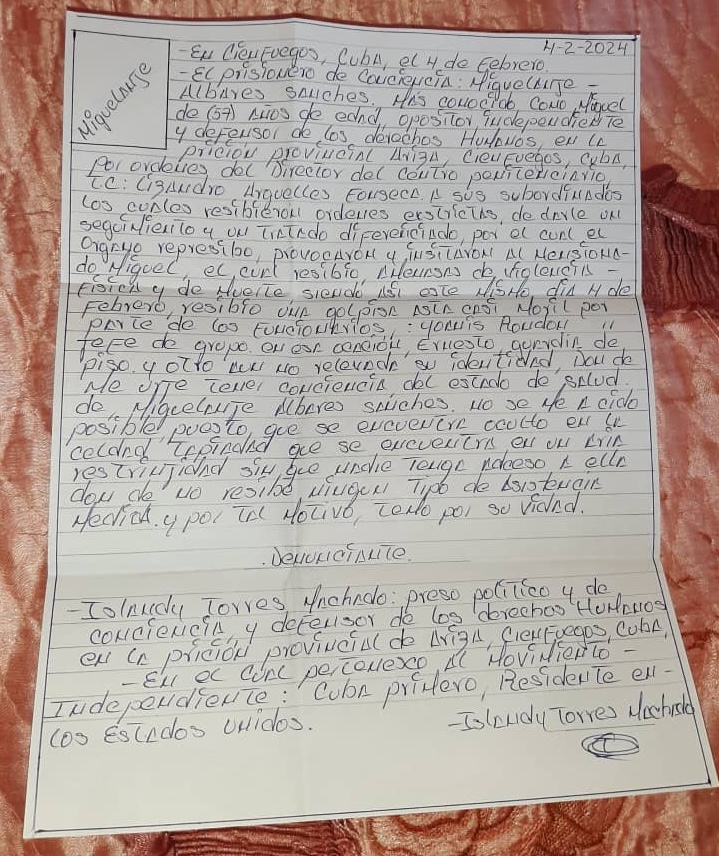 4-2-2024
Miguelanje
-En Cienfuegos, Cuba, el 4 de Febrero.
-El prisionero de Conciencia: Miguelanje -
Albares Sanches. Mas conocido como, Miguel
de (57) Años de edad, opositor, independiente
y defensor de los derechos Humanos, en la
prición provincial Ariza, Cienfuegos, Cuba,
Por ordenes del Director del Centro penitenciario,
T.C: Lizandro Arguelles Fonseca. A sus subordinados
los cuales resibieron ordenes enstrictas, de darle un
seguimiento y un tratado diferenciado, por el cual el
Organo represibo, provocaron y insitaron al mensiona-
do Miguel, el cual resibio amensas de violencia -
Física y de Muerte siendo Así este Mismo dia 4 de
Febrero, resibio una golpisa asta casi Movil por
parte de los Funcionarios, : Yoanis Rondon "
Jefe de grupo en esa canción, Ernesto guardia de
piso y otro aun no relevada su identidad, Don de
Me urje tener conciencia del estado de salud.
de, Miguelanje Albares sanches. No se me a cido
posible, puesto, que se encuentra oculto en la
celdad, tapiadad que se encuentra en un aria
restrinjidad sin que nadie tenga adseso a ella
don de no resibe ningun tipo de asistencia
Medica. y por tal Motivo, temo por su vidad.
. Denunciante.
-Islandy Torres Machado: preso politico y de
conciencia, y defensor de los derechos Humanos
en la prición provincial de Ariza, Cienfuegos, Cuba,
-En el cual pertenesco al Movimiento -
Independiente: Cuba primero, Residente en -
los Estados Unidos.
-Islandy Torres Machado